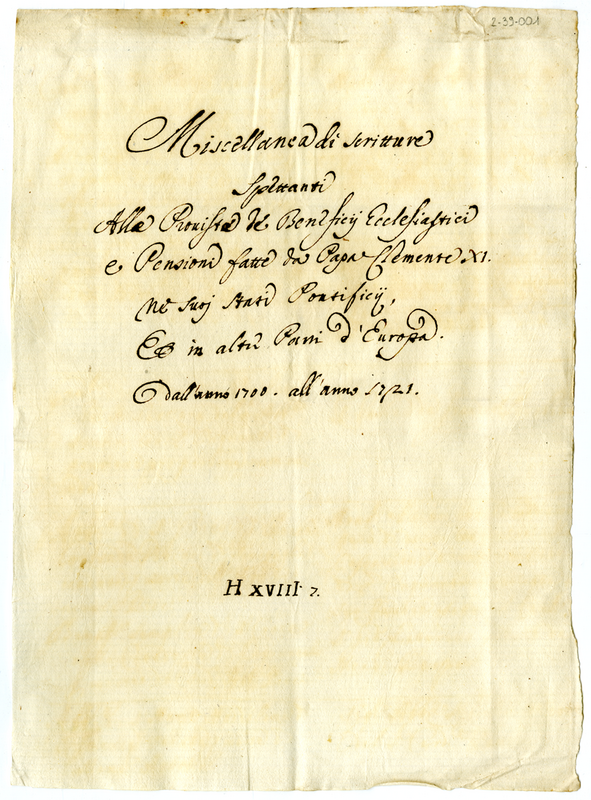 2-39-001
Miscellanea di scritture
Spettanti
Alle Proviste de Beneficij Ecclesiastici
e Pensioni fatte da Papa Clemente XI.
ne suoj stati Pontificij,
Et in altri Parti d'Europa.
dall'anno 1700. all'anno 1721.
H XVIII 7.